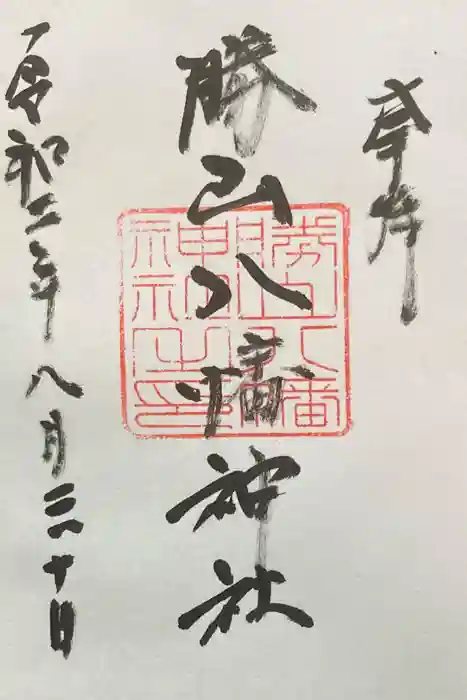 奉拝
勝山八幡神社
勝山八幡神社之印
令和二年八月三十日